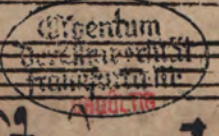 Eigentum
der Universität
Frankfurt a.M.
UNGÜLTIG